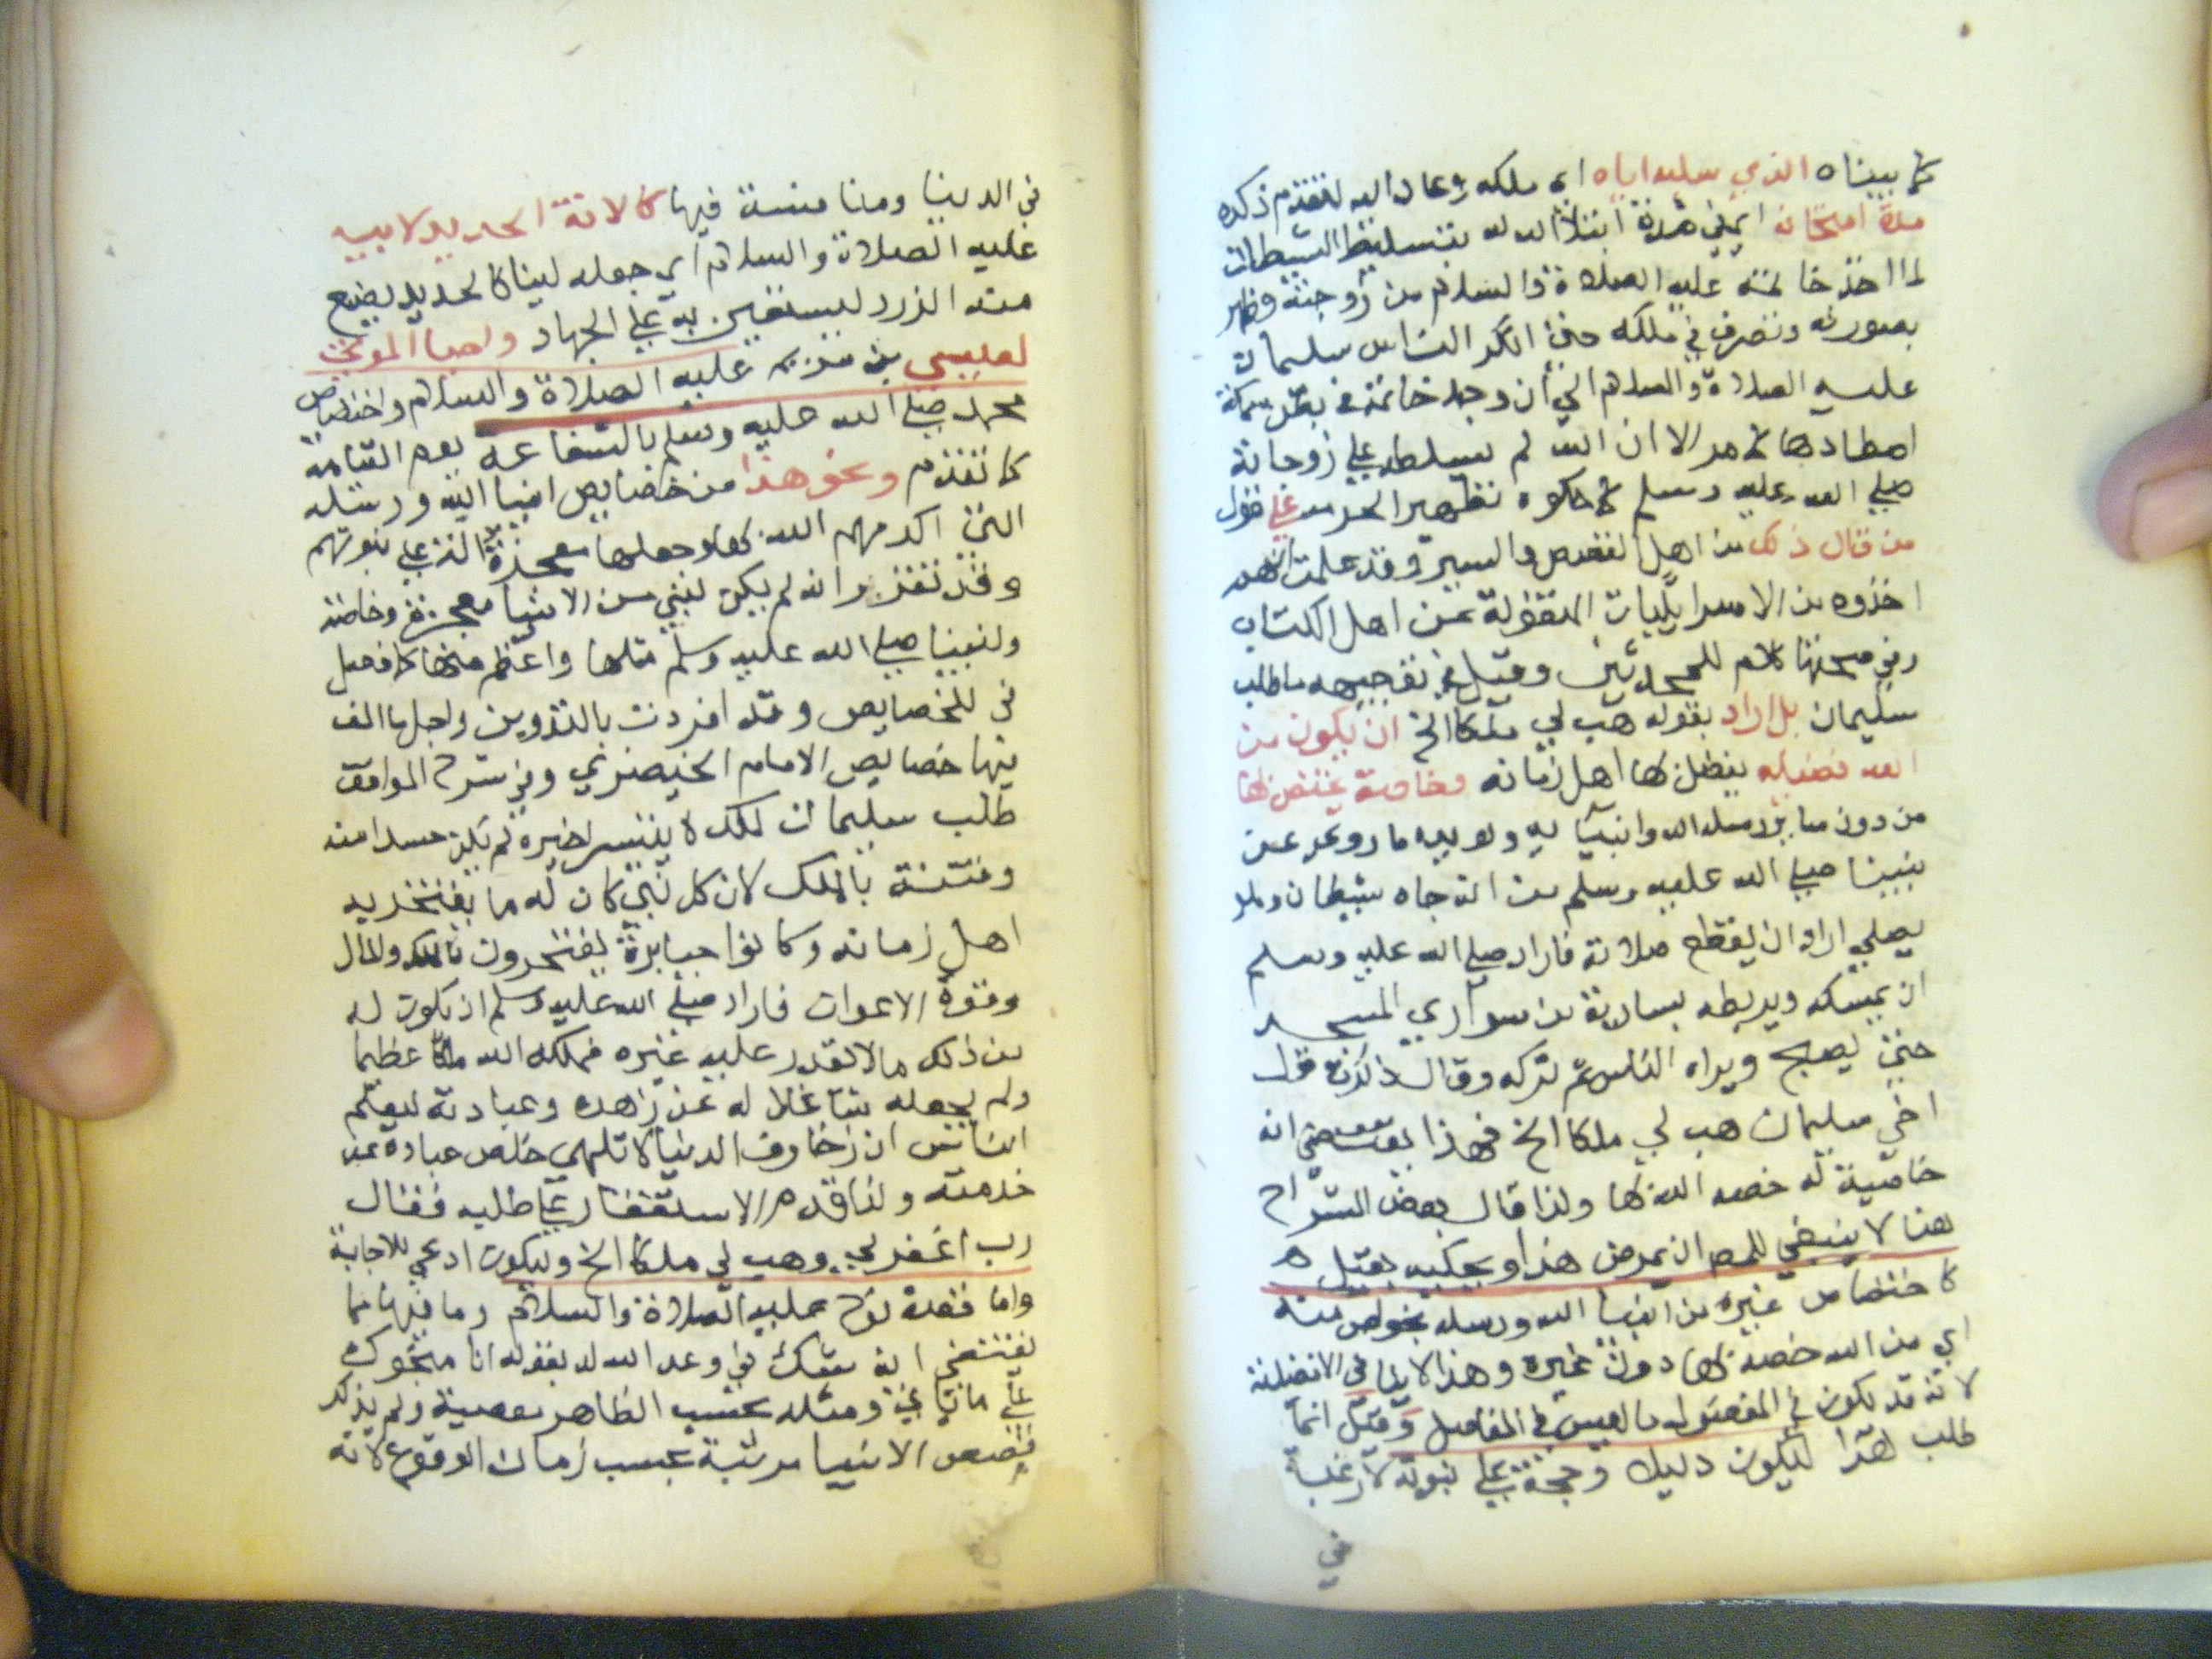 كما بيناه الذي سلبه اياه اي ملكه وعاد اليه لتقدم ذكره
مدة امتحانه اي في مدة ابتلا الله له بتسليط الشيطان
لما اخذ خاتمه عليه الصلاة والسلام من زوجته وظهر
بصورته وتصرف في ملكه حتى انكر الناس سليمان
عليه الصلاة والسلام الي أن وجد خاتمه في بطن سمكة
اصطادها كما مر الا ان الله لم يسلطه علي زوجاته
صلي الله عليه وسلم كما حكوه تطهيرا لحرمه علي قول
من قال ذلك من اهل القصص والسير وقد علمت انهم
اخذوه من الاسرايليات المنقولة عن اهل الكتاب
وفي صحتها كلام للمحدثين وقيل في توجيهه ما طلب
سليمان بل اراد بقوله هب لي ملكا الخ ان يكون من
الله فضيله يفضل بها اهل زمانه وخاصة يختص بها
من دون ساير رسل الله وانبيآيه ويويده ما روي عن
نبينا صلي الله عليه وسلم من انه جاه شيطان وهو
يصلي اراد ان يقطع صلاته فاراد صلي الله عليه وسلم
ان يمسكه ويربطه بسارية من سواري المسجد
حتى يصبح ويراه الناس ثم تركه وقال ذكرت قول
اخي سليمان هب لي ملكا الخ فهذا يقتضي انه
خاصية له خصه الله بها ولذا قال بعض الشراح
هنا لا ينبغي للمص ان يمرض هذا ويحكيه بقيل
كاختصاص غيره من انبيا الله ورسله بخواص منه
اي من الله خصه بها دون غيره وهذا لا ينافي الافضلية
لانه قد يكون في المفضول ما ليس في الفاضل وقيل انما
طلب هذا ليكون دليلا وحجة علي نبوته لا رغبة
في
في الدنيا ومنافسة فيها كالانة الحديد لابيه
عليه الصلاة والسلام اي جعله لينا كالحديد يصنع
منه الزرد ليستعين به علي الجهاد واحيا الموتى
لعيسى بن مريم عليه الصلاة والسلام واختصاص
محمد صلي الله عليه وسلم بالشفاعة يوم القيامة
كما تقدم ونحو هذا من خصايص انبيا الله ورسله
التي اكرمهم الله بها وجعلها معجزة لهم علي نبوتهم
وقد تقرر انه لم يكن لنبي من الانبيا معجزة وخاصة
ولنبينا صلي الله عليه وسلم مثلها واعظم منها كما فصل
في الخصايص وقد افردت بالتدوين واجل ما الف
فيها خصايص الامام الخيضري وفي شرح المواقف
طلب سليمان لملك لا يتيسر لغيره لم يكن حسدا منه
وفتنة بالملك لان كل نبي كان له ما يفتخر به
اهل زمانه وكانوا جبابرة يفتخرون بالملك والمال
وقوة الاعوان فاراد صلي الله عليه وسلم ان يكون له
من ذلك ما لا يقدر عليه غيره فملكه الله ملكا عظيما
ولم يجعله شاغلا له عن زهده وعبادته ليعلم
الناس ان زخارف الدنيا لا تلهي خلص عباده عن
خدمته ولذا قدم الاستغفار علي طلبه فقال
رب اغفر لي وهب لي ملكا الخ وليكون ادعي للاجابة
واما قصة نوح عليه الصلاة والسلام وما فيها مما
يقتضي انه شك في وعد الله له بقوله انا منجوك
علي ما ياتي ومثله بحسب الظاهر معصية ولم يذكر
قصص الانبيا مرتبة بحسب زمان الوقوع لانه